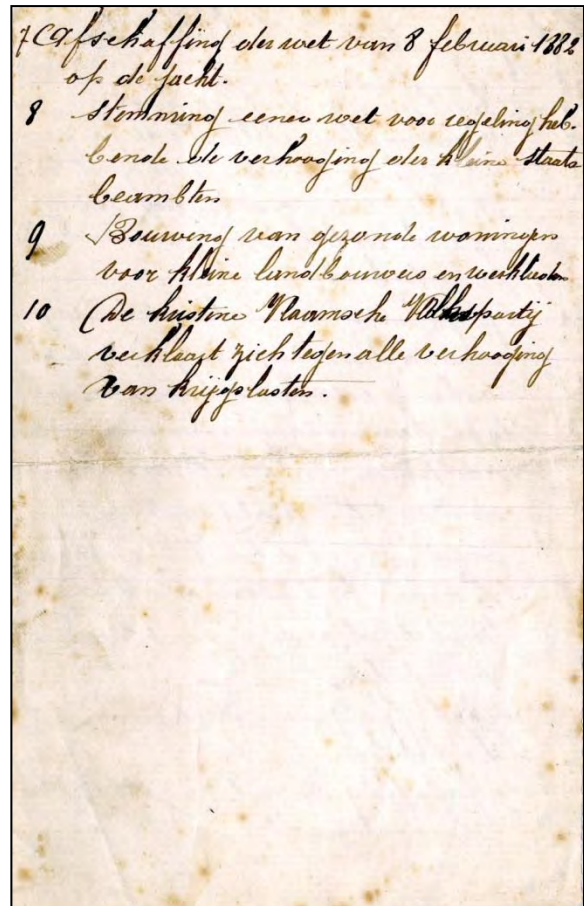 7 Afschaffing der wet van 8 februari 1882
op de jacht.
8 Stemming eener wet voor regeling heb-
bende de verhooging der kleine staats
beambten
9 Bouwing van gezonde woningen
voor kleine landbouwers en werklieden
10 De kristene Vlaamsche Volkspartij
verklaart zich tegen alle verhooging
van krijgslasten.